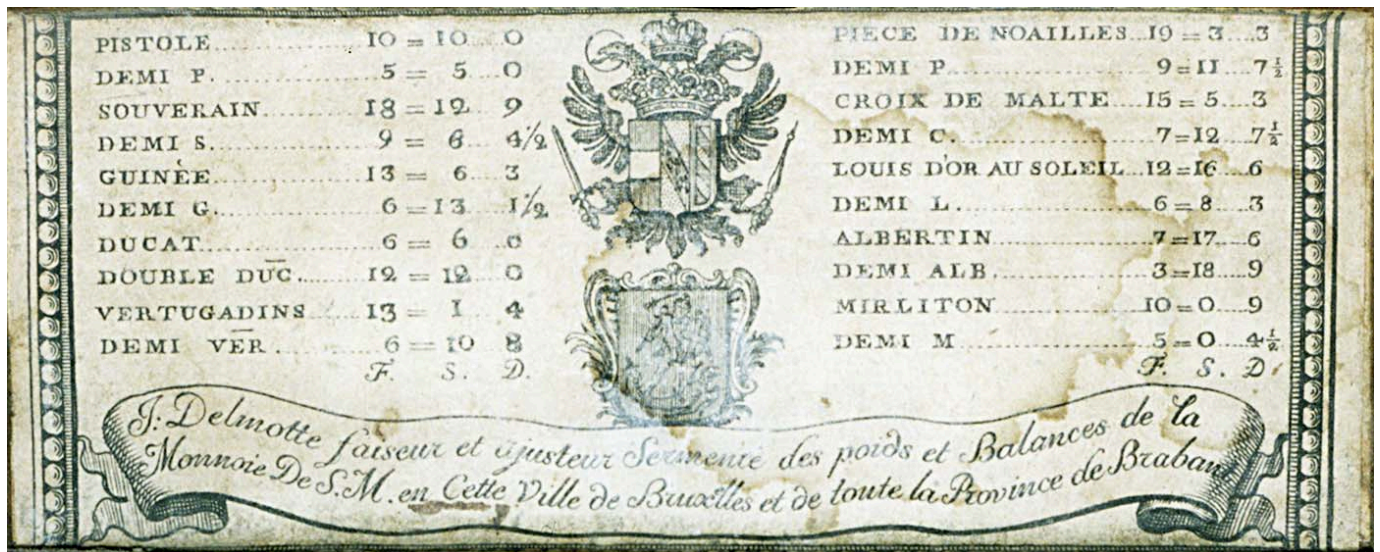 PISTOLE 10 = 10 0
DEMI P. 5 = 5 0
SOUVERAIN 18 = 12 9
DEMI S. 9 = 6 4½
GUINÉE 13 = 6 3
DEMI G. 6 = 13 1½
DUCAT 6 = 6 0
DOUBLE DUC̄ 12 = 12 0
VERTUGADINS 13 = 1 4
DEMI VĒR 6 = 10 8
F. S. D.
PIECE DE NOAILLES 19 = 3 3
DEMI P 9 = 11 7½
CROIX DE MALTE 15 = 5 3
DEMI C. 7 = 12 7½
LOUIS D'OR AU SOLEIL 12 = 16 6
DEMI L 6 = 8 3
ALBERTIN 7 = 17 6
DEMI ALB. 3 = 18 9
MIRLITON 10 = 0 9
DEMI M 5 = 0 4½
F. S. D
J: Delmotte faiseur et ajusteur Sermenté des poids et Balances de la
Monnoie De S. M. en Cette Ville de Bruxelles et de toute la Province de Braban